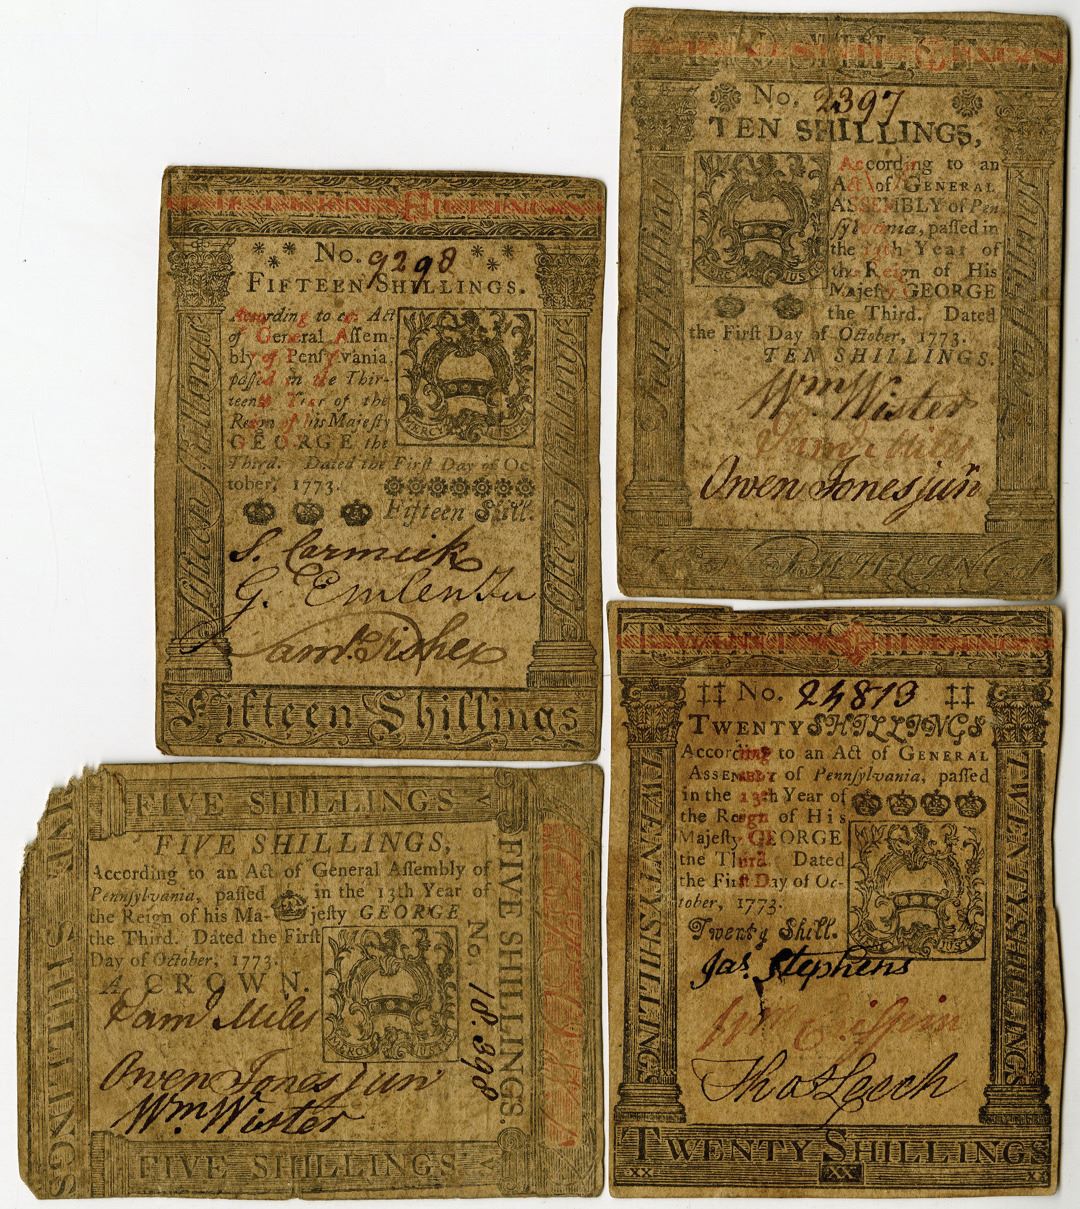 No. 9298
FIFTEEN SHILLINGS.
According to an Act
of General Aſſem-
bly of Penſylvania
paſſed in the Thir-
teenth Year of the
Reign of his Majeſty
GEORGE the
Third. Dated the Firſt Day of Oc-
tober, 1773.
Fifteen Shill.
S. Carmick
G. Emlen
Saml. Fisher
Fifteen Shillings
Fifteen Shillings
Fifteen Shillings
MERCY JUSTICE
No. 2397
TEN SHILLINGS,
According to an
Act of GENERAL
ASSEMBLY of Pen-
ſylvania, paſſed in
the 13th Year of
the Reign of His
Majeſty GEORGE
the Third. Dated
the Firſt Day of October, 1773.
TEN SHILLINGS.
Wm. Wister
Saml Miles
Owen Jones junr
Ten Shillings
MERCY JUSTICE
FIVE SHILLINGS
FIVE SHILLINGS,
According to an Act of General Aſſembly of
Pennſylvania, paſſed in the 13th Year of
the Reign of his Ma- jeſty GEORGE
the Third. Dated the Firſt
Day of October, 1773.
A CROWN.
Saml Miles
Owen Jones jun
Wm. Wister
FIVE SHILLINGS
FIVE SHILLINGS
No. 18.398
FIVE SHILLINGS.
MERCY JUSTICE
No. 24813
TWENTY SHILLINGS
According to an Act of GENERAL
ASSEMBLY of Pennſylvania, paſſed
in the 13th Year of
the Reign of His
Majeſty GEORGE
the Third. Dated
the Firſt Day of Oc-
tober, 1773.
Twenty Shill.
Jas. Stephens
Wm Criſpin
Thos Leech
TWENTY SHILLINGS
TWENTY SHILLINGS
TWENTY SHILLINGS
XX XX XX
MERCY JUSTICE